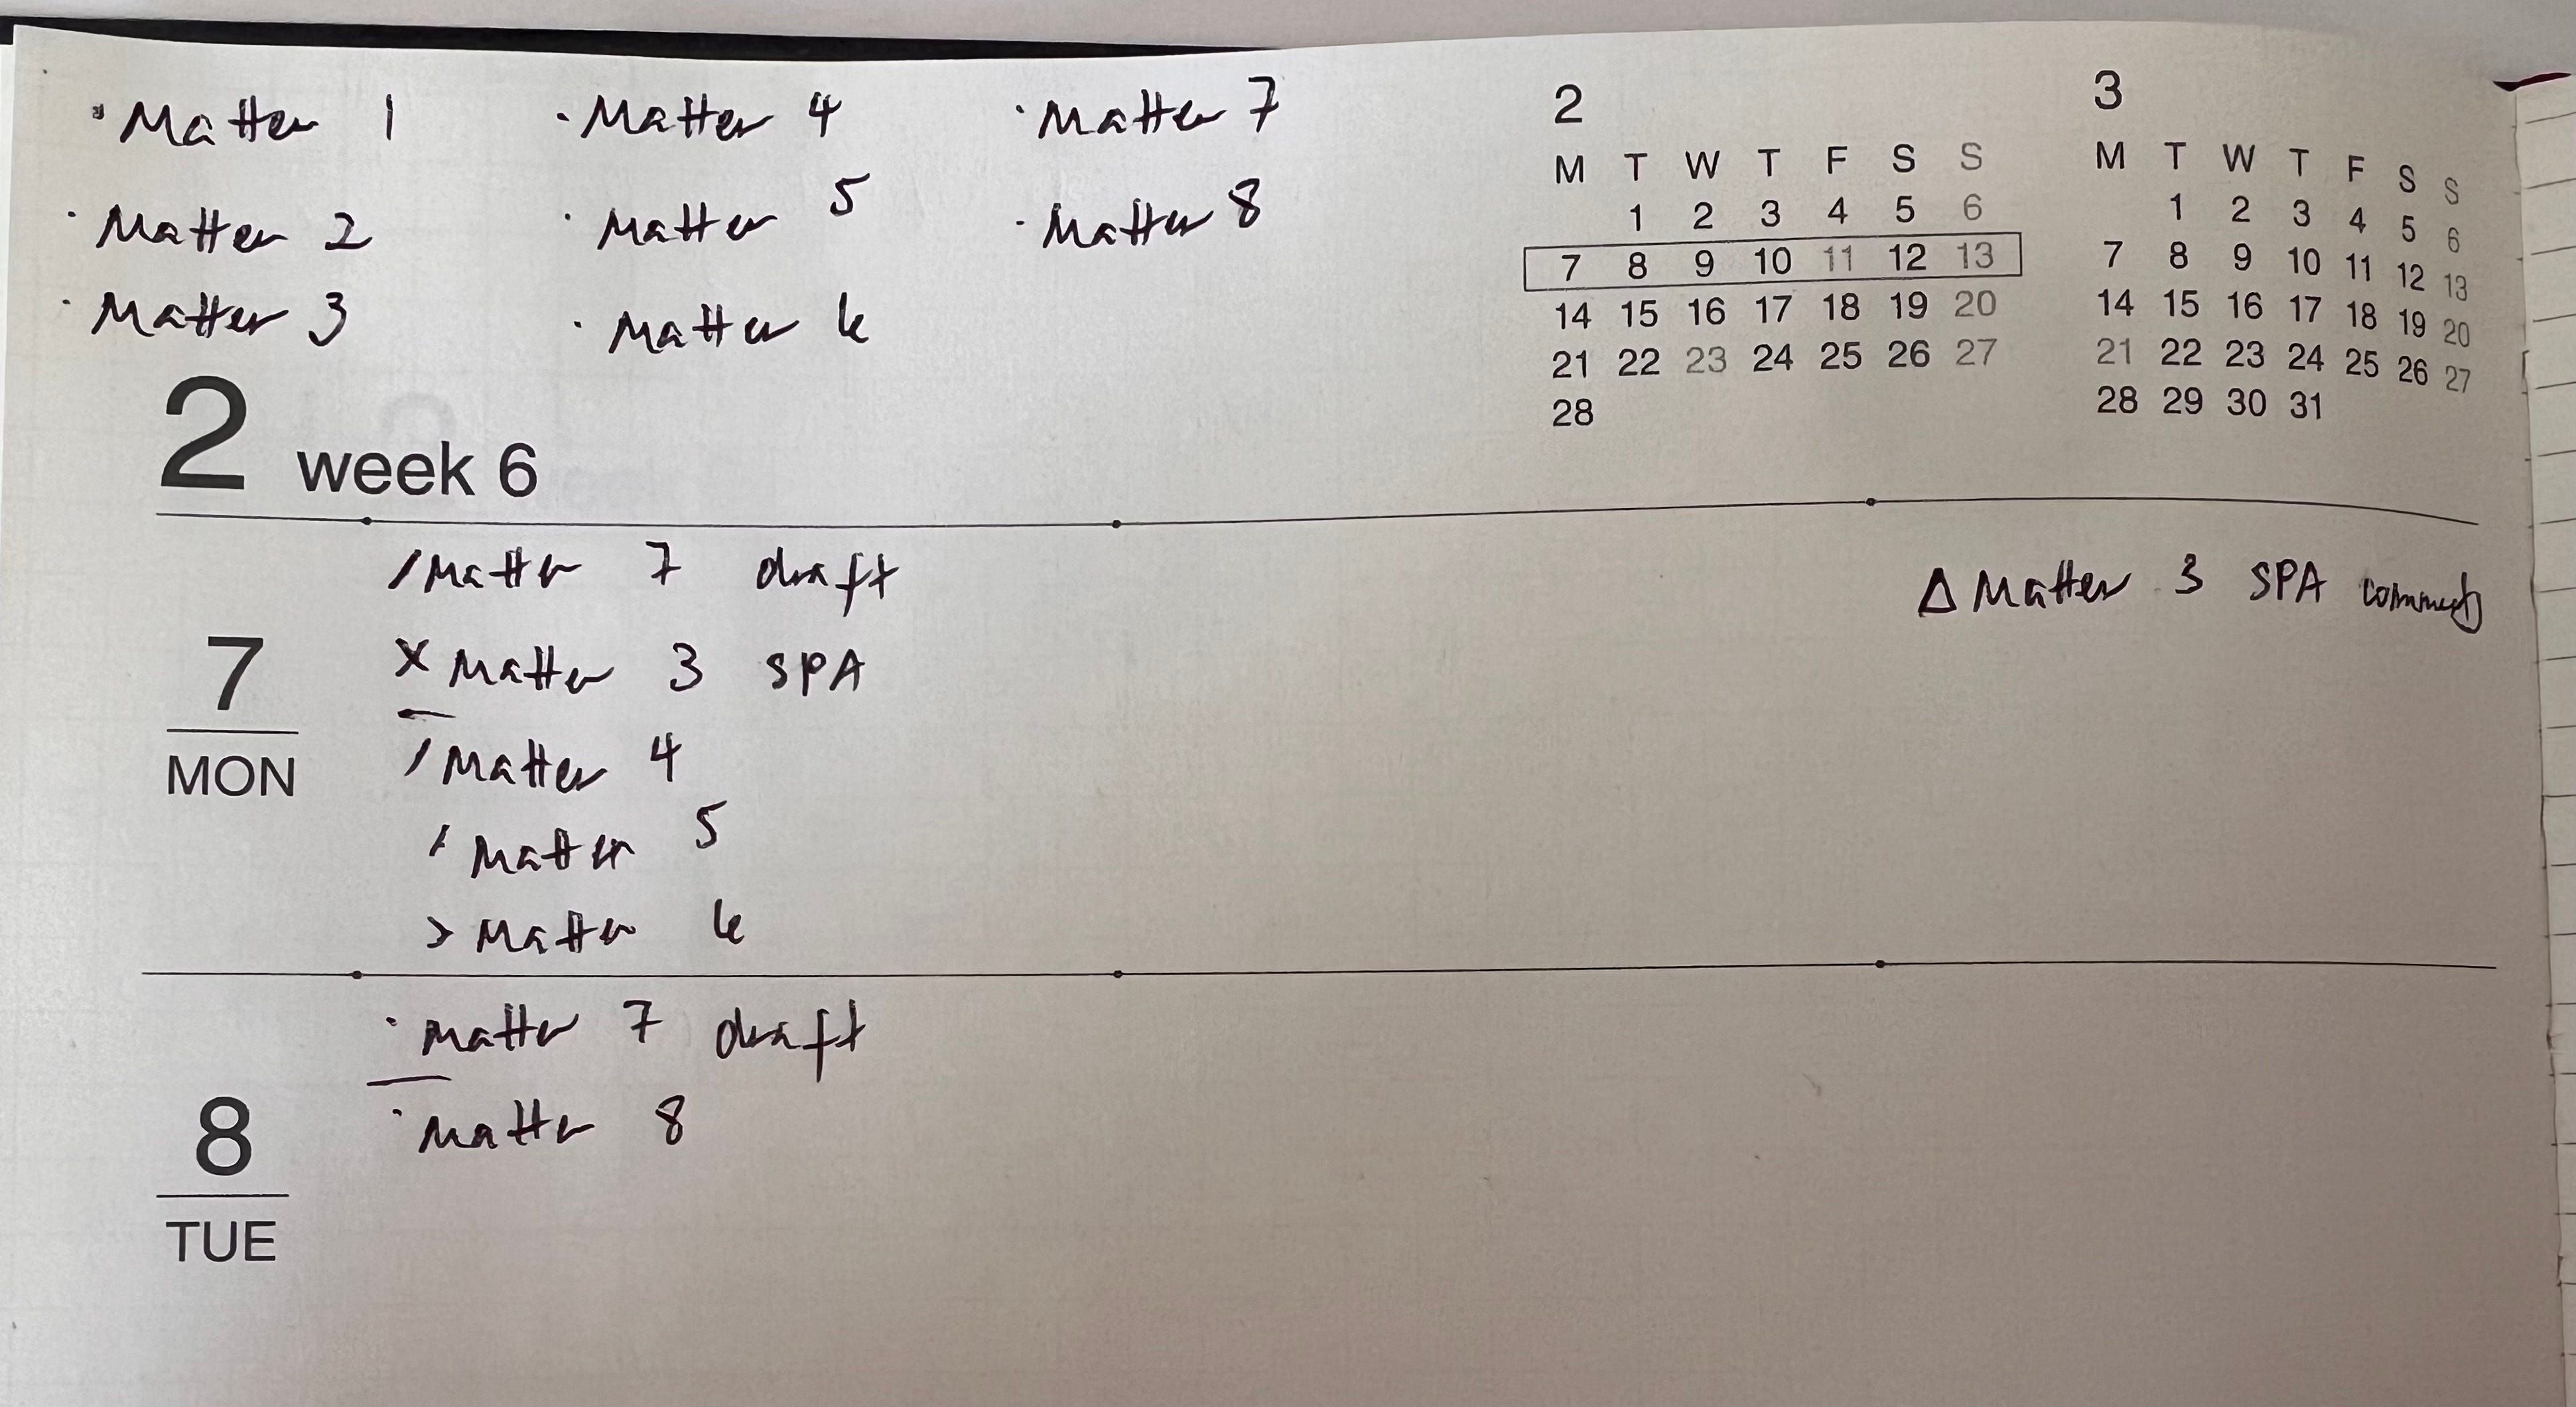 · Matter 1
· Matter 2
· Matter 3
· Matter 4
· Matter 5
· Matter 6
· Matter 7
· Matter 8
2
M T W T F S S
1 2 3 4 5 6
7 8 9 10 11 12 13
14 15 16 17 18 19 20
21 22 23 24 25 26 27
28
3
M T W T F S S
1 2 3 4 5 6
7 8 9 10 11 12 13
14 15 16 17 18 19 20
21 22 23 24 25 26 27
28 29 30 31
2 week 6
7
MON
/ Matter 7 draft
x Matter 3 SPA
/ Matter 4
/ Matter 5
> Matter 6
Δ Matter 3 SPA comments
8
TUE
· Matter 7 draft
· Matter 8